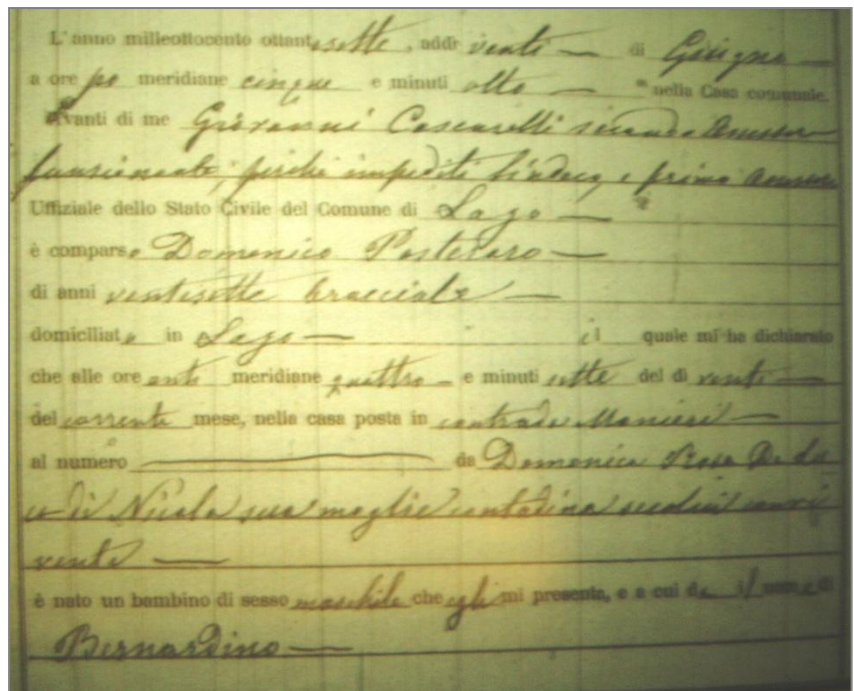 L'anno milleottocento ottantasette, addì venti — di Giugno —
a ore po meridiane cinque e minuti otto — nella Casa comunale.
Avanti di me Giovanni Coscarelli secondo Assessore
funzionante, perché impediti Sindaco, e primo Assessore
Uffiziale dello Stato Civile del Comune di Lago —
è comparso Domenico Posteraro —
di anni ventisette bracciale —
domiciliato in Lago — il quale mi ha dichiarato
che alle ore anti meridiane quattro — e minuti sette del dì venti —
del corrente mese, nella casa posta in contrada Manieri —
al numero — da Domenica Rosa De Lu
ca di Nicola sua moglie contadina seco lui convi
vente —
è nato un bambino di sesso maschile che egli mi presenta, e a cui dà il nome di
Bernardino —